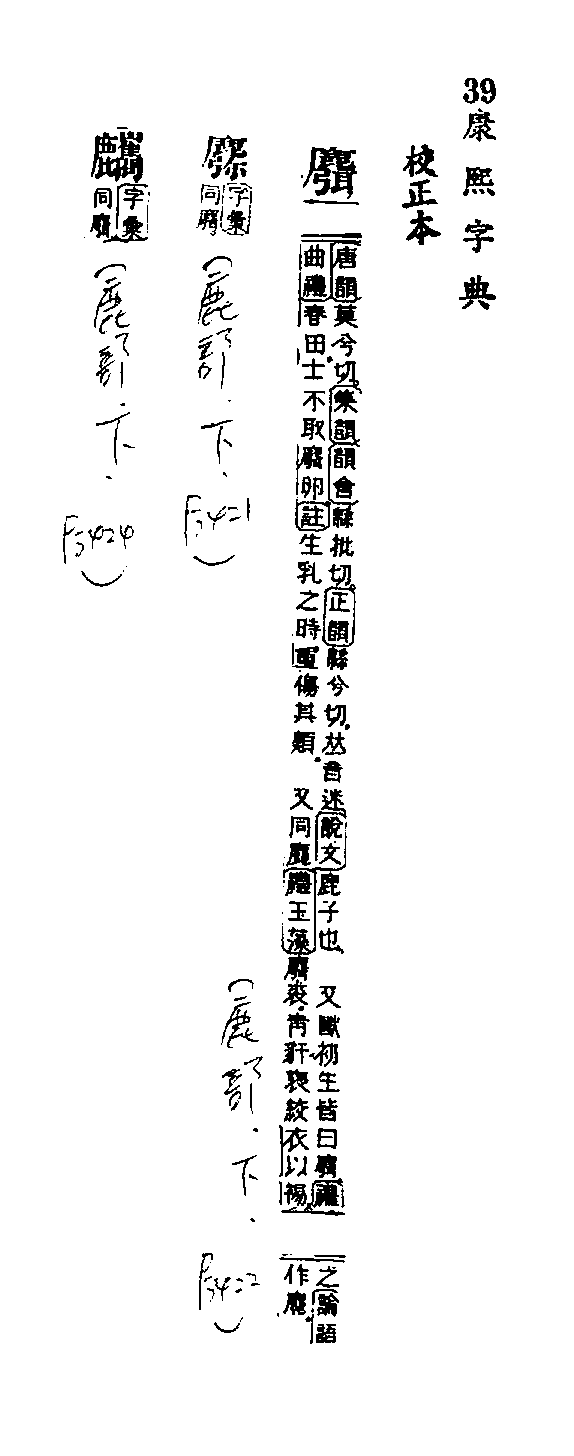 39康熙字典
校正本
麛
唐韻莫兮切集韻韻會緜批切正韻緜兮切𠀤音迷說文鹿子也 又獸初生皆曰麛禮
曲禮春田士不取麛卵註生乳之時重傷其類 又同麑禮玉藻麛裘靑豻褎絞衣以裼
之論語
作麑
(鹿部.下.P3422)
字彙
同麛
(鹿部.下.P3421)
字彙
同麛
(鹿部.下.P3424)